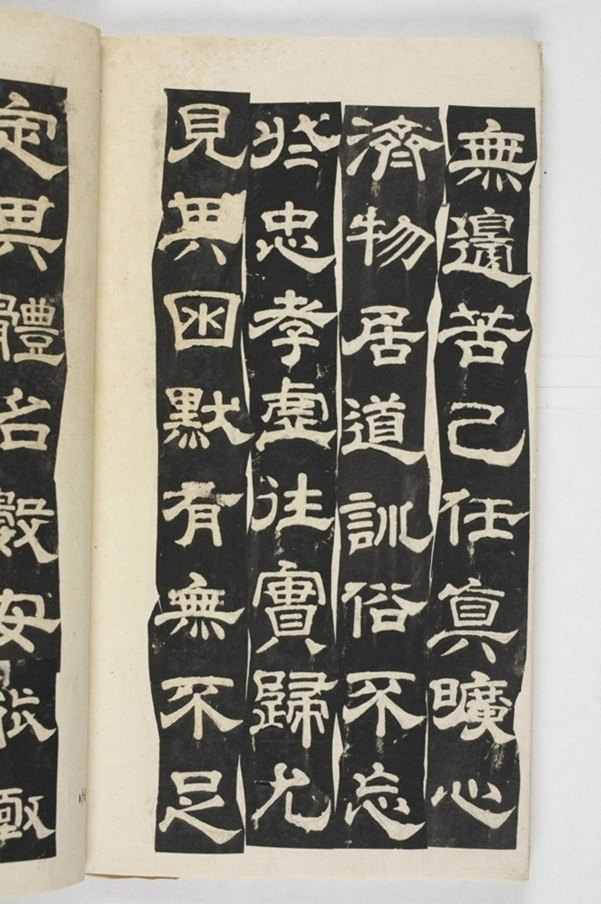 無邊苦己任真曠心
濟物居道訓俗不忘
於忠孝虛往實歸尤
見其囦默有無不足
定其體名數安